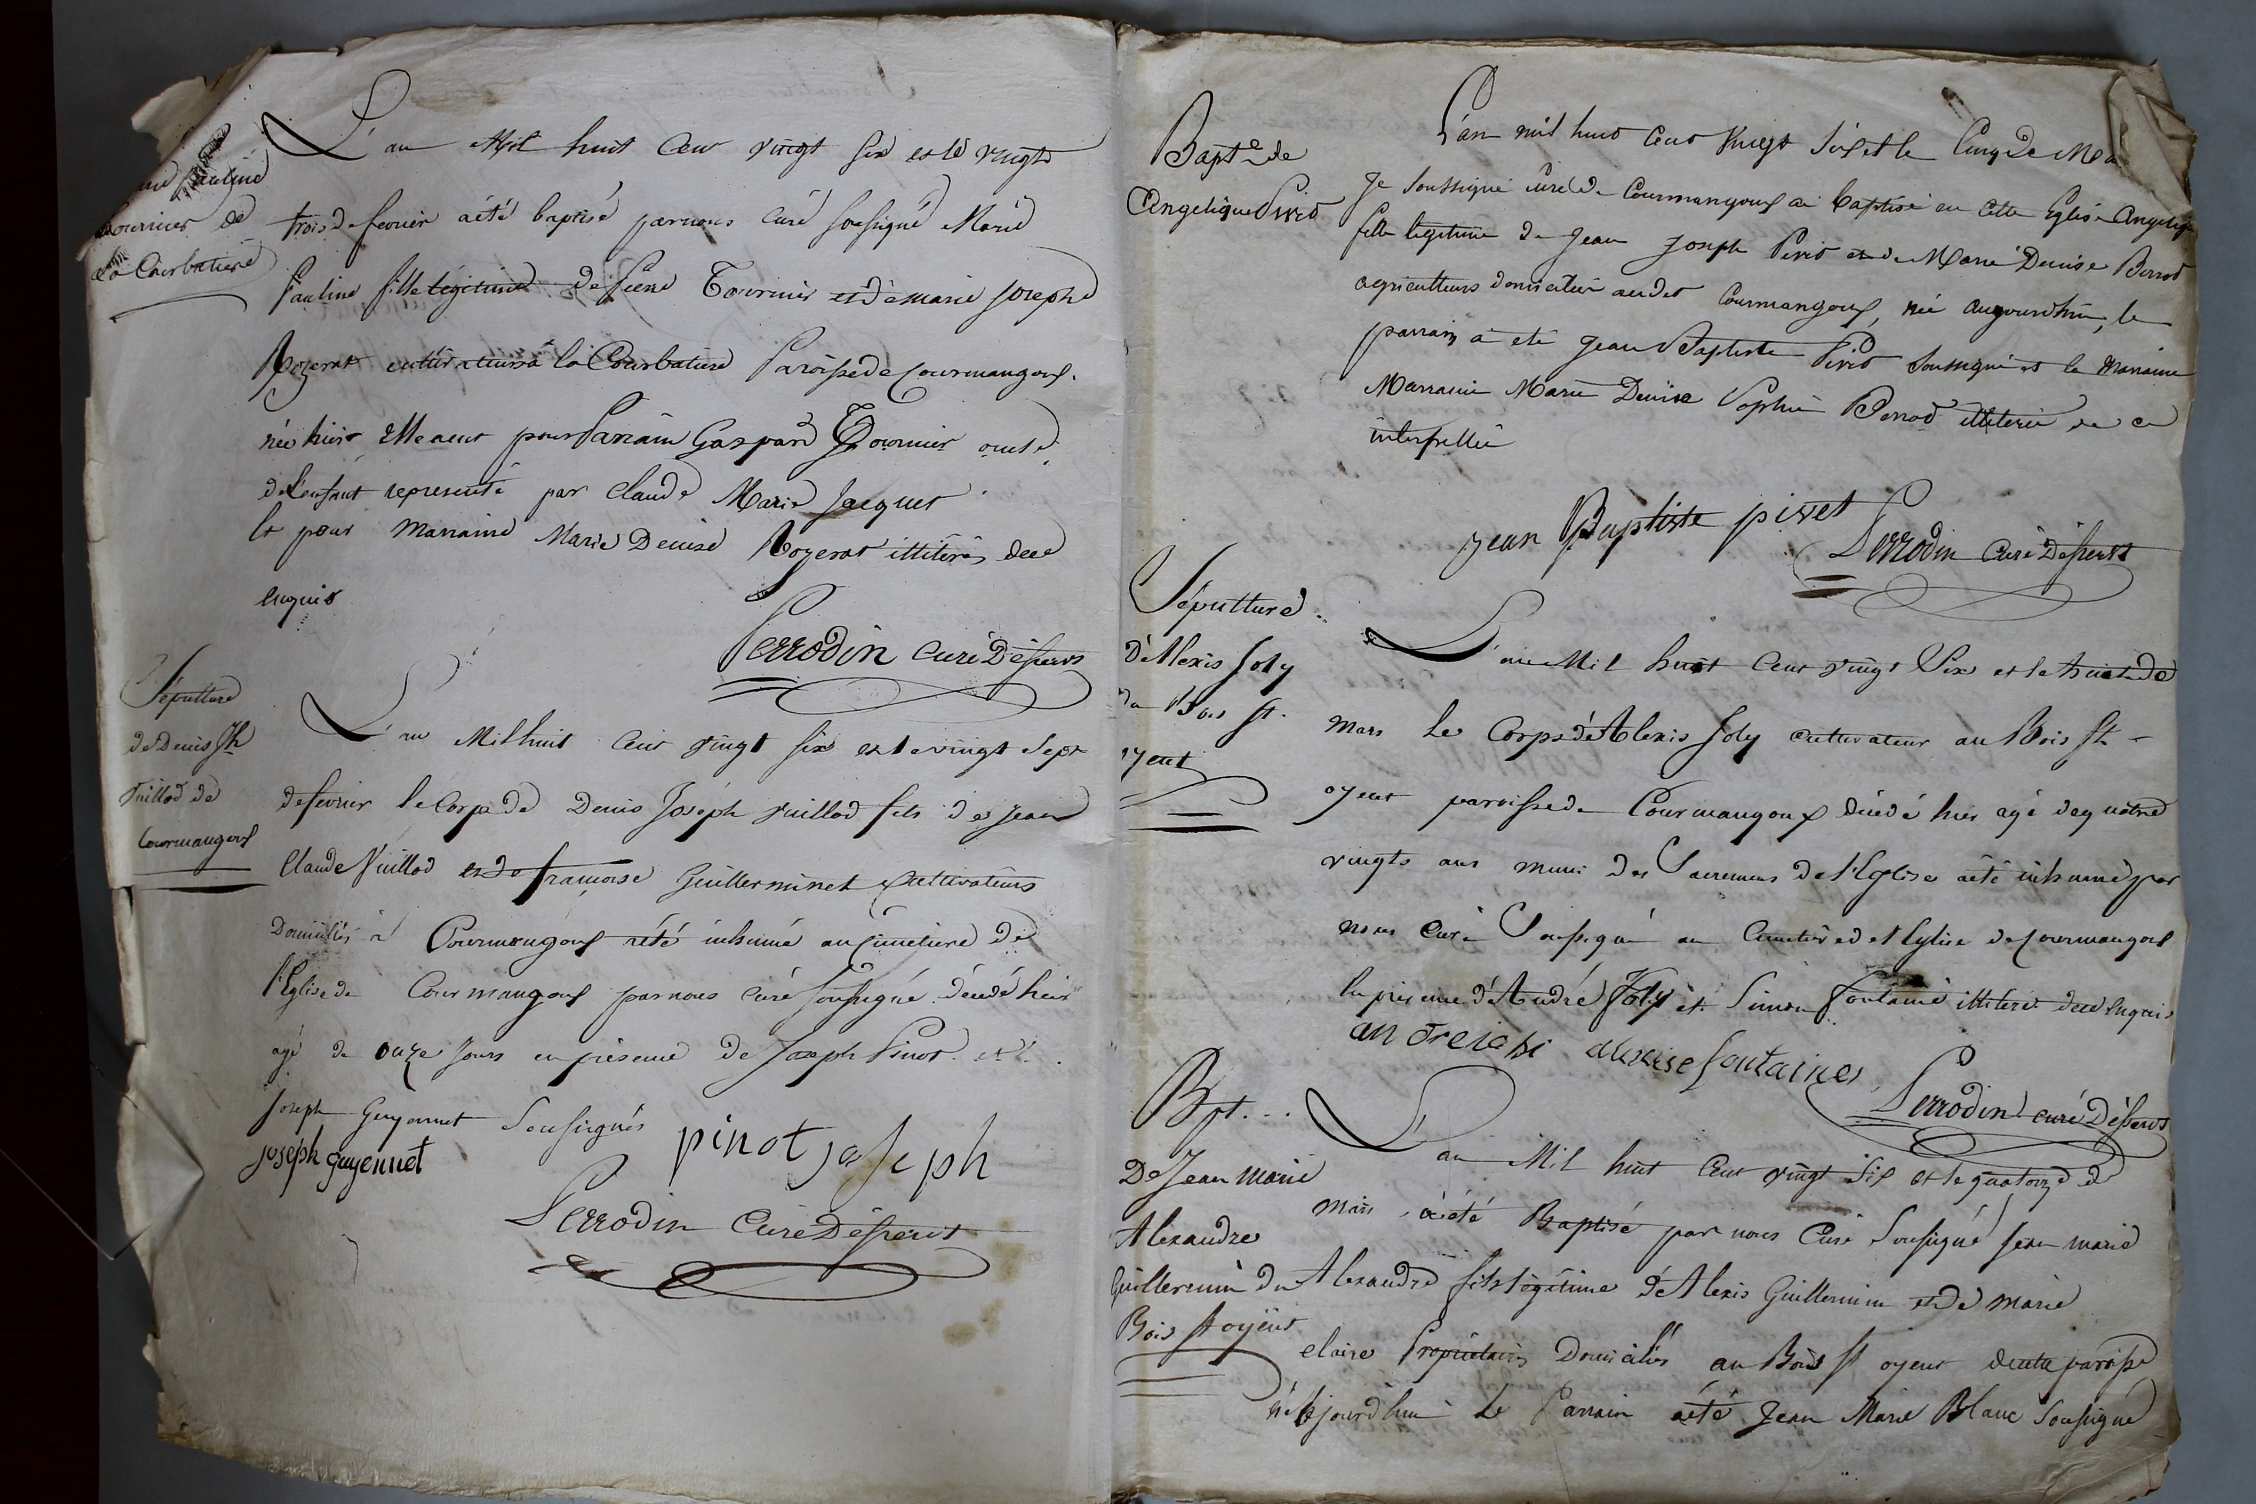 Pauline
Tournier de
la Courbatiere
L'an Mil huit Cent vingt Six et le vingt
trois de fevrier a été baptisé par nous curé Soussigné Marie
Pauline fille légitime de Pierre Tournier et de marie Josephe
Rozerat cultivateurs à la Courbatiere Paroisse de Courmangoux.
née hier Elle a eut pour Parrain Gaspard Tournier oncle
de l'enfant representé par Claude Marie Jacquet
et pour Marraine Marie Denise Rozerat illitérés de ce
enquis
Perrodin Curé Désserv
Sépulture
de Denis Jh
Vuillod de
Courmangoux
L'an Mil huit Cent vingt six et le vingt Sept
de fevrier le Corps de Denis Joséph vuillod fils de Jean
Claude Vuillod et de françoise Guillerminet Cultivateurs
Domiciliés à Courmangoux a été inhumé au Cimetiere de
l'Eglise de Courmangoux par nous curé soussigné décédé hier
agé de onze Jours en présence de Joseph Pinot et
Joseph Guyennet Soussignés
joseph guyennet pinot joseph
Perrodin Curé Désservt
Bapt.e de
Angelique Pivet
L'an mil huit cent vingt Six et le Cinq de Ma
Je soussigné Curé de Courmangoux ai baptisé en cette Eglise Angeliq
fille légitime de Jean Joseph Pivet et de Marie Denise Berrod
agriculteurs domiciliés audit Courmangoux, née aujourd'hui, le
parrain a été Jean Baptiste Pivet soussigné et la Marraine
Marraine Marie Denise Sophie Berrod illiterée de ce
interpellée
jean Baptiste pivet
Perrodin Curé Désservt
Sépulture
d'Alexis Joly
du Bois St.
oyent
L'an Mil huit Cent vingt Six et le huit de
mars le Corps d'Alexis Joly cultivateur au Bois St
oyent paroisse de Courmangoux décédé hier agé de quatre
vingts ans muni des Sacremens de l'Eglise a été inhumé par
nous Curé Soussigné au Cimetiere de l'Eglise de Courmangoux
En présence d'André Joly et Simon fontaine illiteré de ce Enquis
andre joli alexise fontaines
Perrodin curé Désservt
Bpt.
De Jean marie
Alexandre
Guillermin du
Bois St oyent
L'an Mil huit Cent vingt Six et le quatorze de
mars a été Baptisé par nous Curé Soussigné Jean marie
Alexandre fils légitime d'Alexis Guillermin et de marie
claire Propriétaires Domiciliés au Bois St oyent de cette paroisse
né le jourd'hui Le Parrain a été Jean Marie Blanc Soussigné